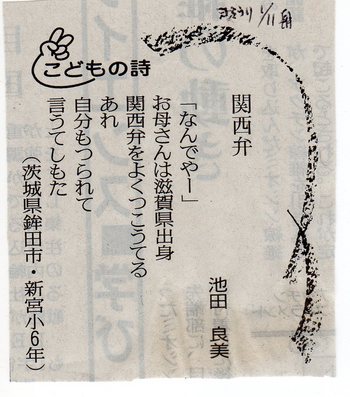 よみうり 1/11 朝
こどもの詩
関西弁
池田 良美
「なんでやー」
お母さんは滋賀県出身
関西弁をよくつこうてる
あれ
自分もつられて
言うてしもた
(茨城県鉾田市・新宮小6年)